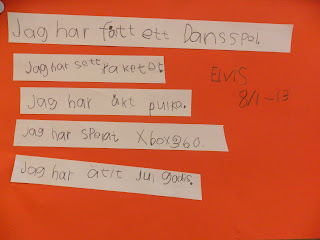 Jag har fått ett Dansspel.
Jag har sett Paketet.
Jag har åkt pulka.
Jag har spelat Xbox360.
Jag har ätit jul godis.
ELVIS
8/1-13